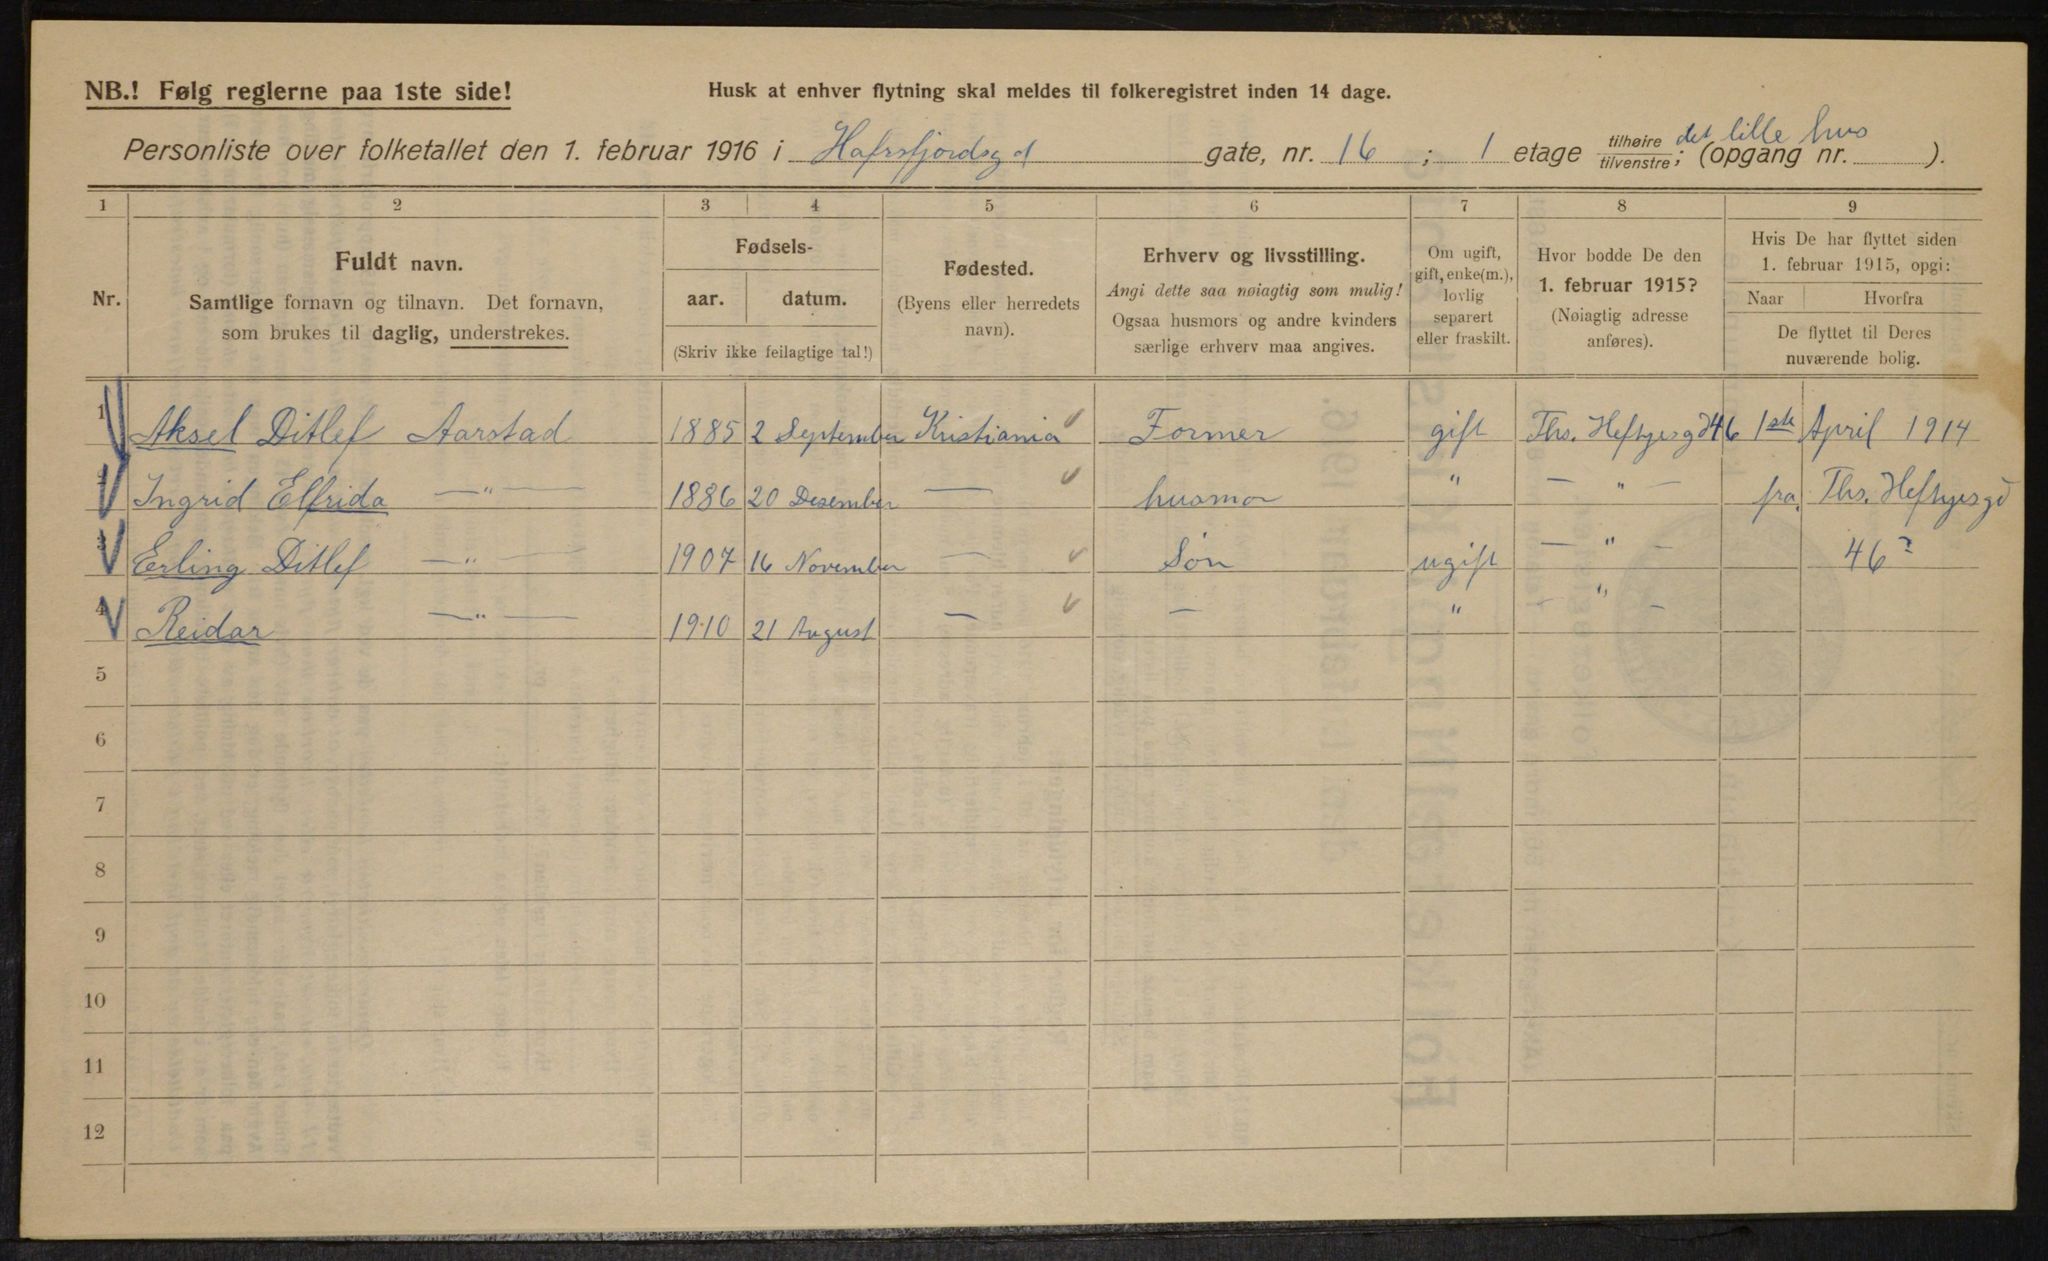 NB.! Følg reglerne paa 1ste side!
Husk at enhver flytning skal meldes til folkeregistret inden 14 dage.
Personliste over folketallet den 1. februar 1916 i Hafrsfjordsgd gate, nr. 16 ; 1 etage tilhøire tilvenstre ; det lille hus (opgang nr. ).
1 2 3 4 5 6 7 8 9
Nr.
Fuldt navn.
Samtlige fornavn og tilnavn. Det fornavn,
som brukes til daglig, understrekes.
Fødsels-
aar. datum.
(Skriv ikke feilagtige tal!)
Fødested.
(Byens eller herredets
navn).
Erhverv og livsstilling.
Angi dette saa nøiagtig som mulig!
Ogsaa husmors og andre kvinders
særlige erhverv maa angives.
Om ugift,
gift, enke(m.),
lovlig
separert
eller fraskilt.
Hvor bodde De den
1. februar 1915?
(Nøiagtig adresse
anføres).
Hvis De har flyttet siden
1. februar 1915, opgi:
Naar Hvorfra
De flyttet til Deres
nuværende bolig.
1 Aksel Ditlef Aarstad 1885 2 September Kristiania Former gift Ths. Heftyesgd 46 1ste April 1914
2 Ingrid Elfrida —"— 1886 20 Desember — husmor " — " — fra. Ths. Heftyesgd
3 Erling Ditlef —"— 1907 16 November — Søn ugift — " — 46?
4 Reidar —"— 1910 21 August — — " — " —
5
6
7
8
9
10
11
12